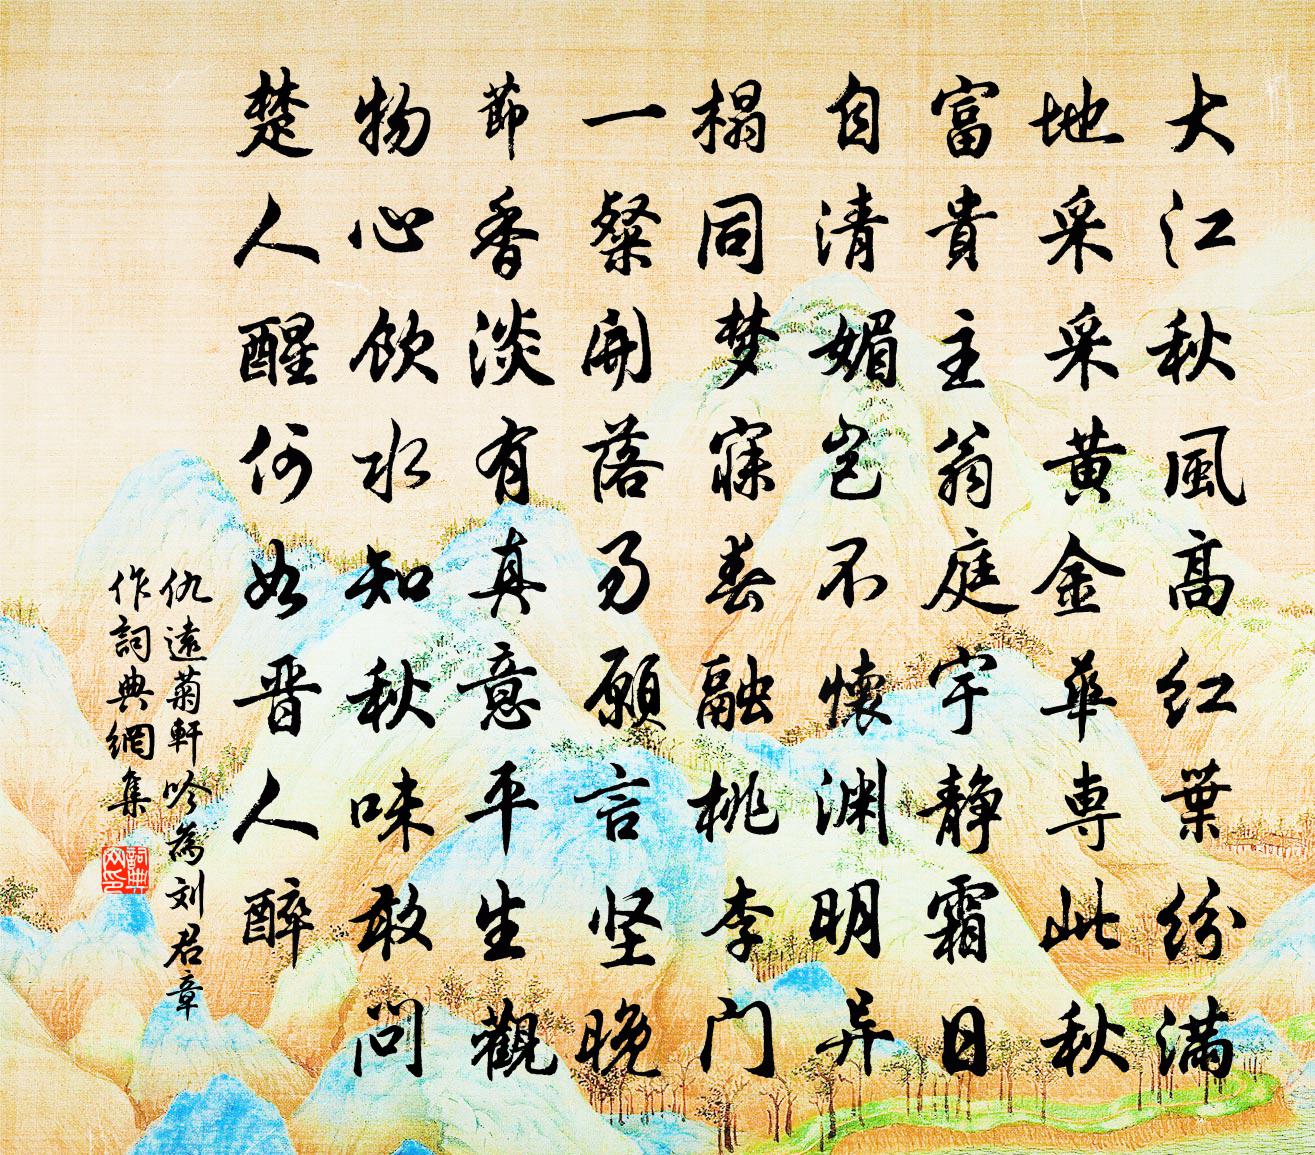 大江秋風高红葉纷满
地采采黄金華専此秋
富貴主翁庭宇静霜日
自清媚岂不懐渊明异
榻同梦寐春融桃李门
一粲開落易願言坚晚
節香淡有真意平生觀
物心飲水知秋味敢问
楚人醒何如晋人醉
仇遠菊軒吟為刘君章
作詞典網集